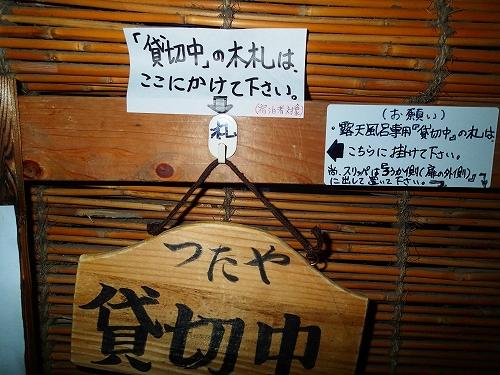 「貸切中」の木札は、
ここにかけて下さい。
(宿泊者対象)
札
(お願い)
・露天風呂専用『貸切中』の札は、
こちらに掛けて下さい。
尚、スリッパは『ろうか側(扉の外側)』
に出して置いて下さい。
つたや
貸切中